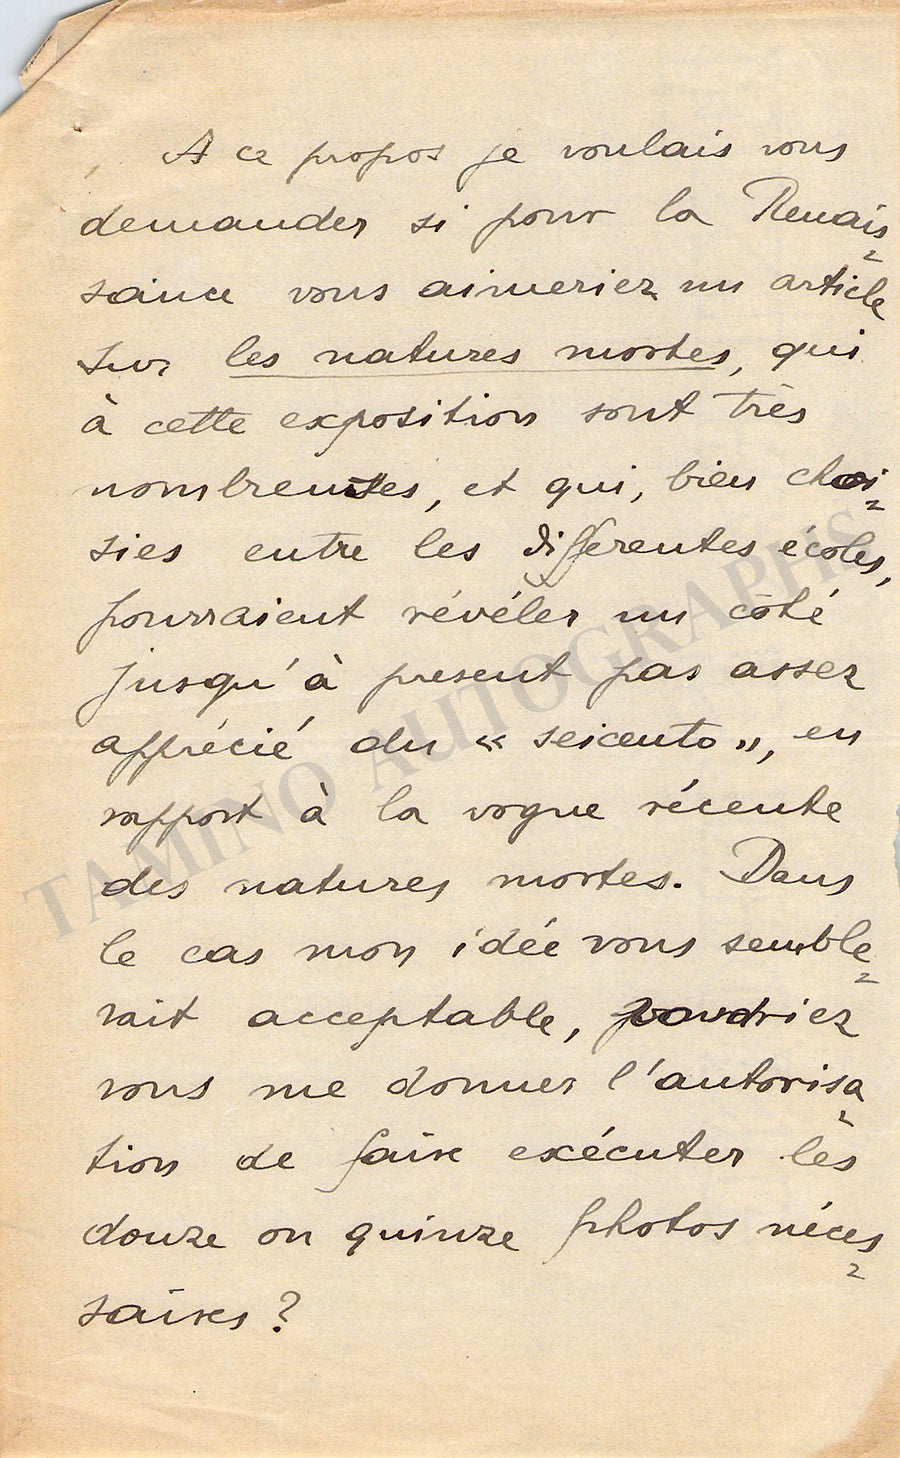 A ce propos je voulais vous
demander si pour la Renais=
sance vous aimeriez un article
sur les natures mortes, qui
à cette exposition sont très
nombreuses, et qui, bien choi=
sies entre les différentes écoles,
pourraient révéler un côté
jusqu'à present pas assez
apprécié du « seicento », en
rapport à la vogue récente
des natures mortes. Dans
le cas mon idée vous semble=
rait acceptable, voudriez
vous me donner l'autorisa=
tion de faire exécuter les
douze ou quinze photos néces=
saires ?
TAMINO AUTOGRAPHS